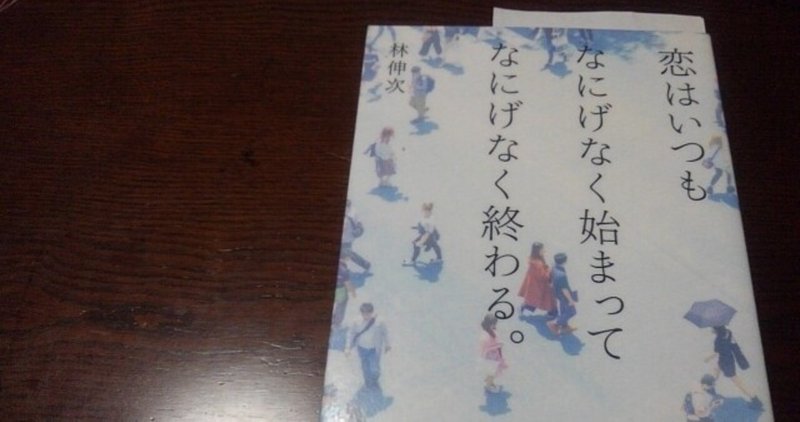 恋はいつも
なにげなく始まって
なにげなく終わる。
林伸次